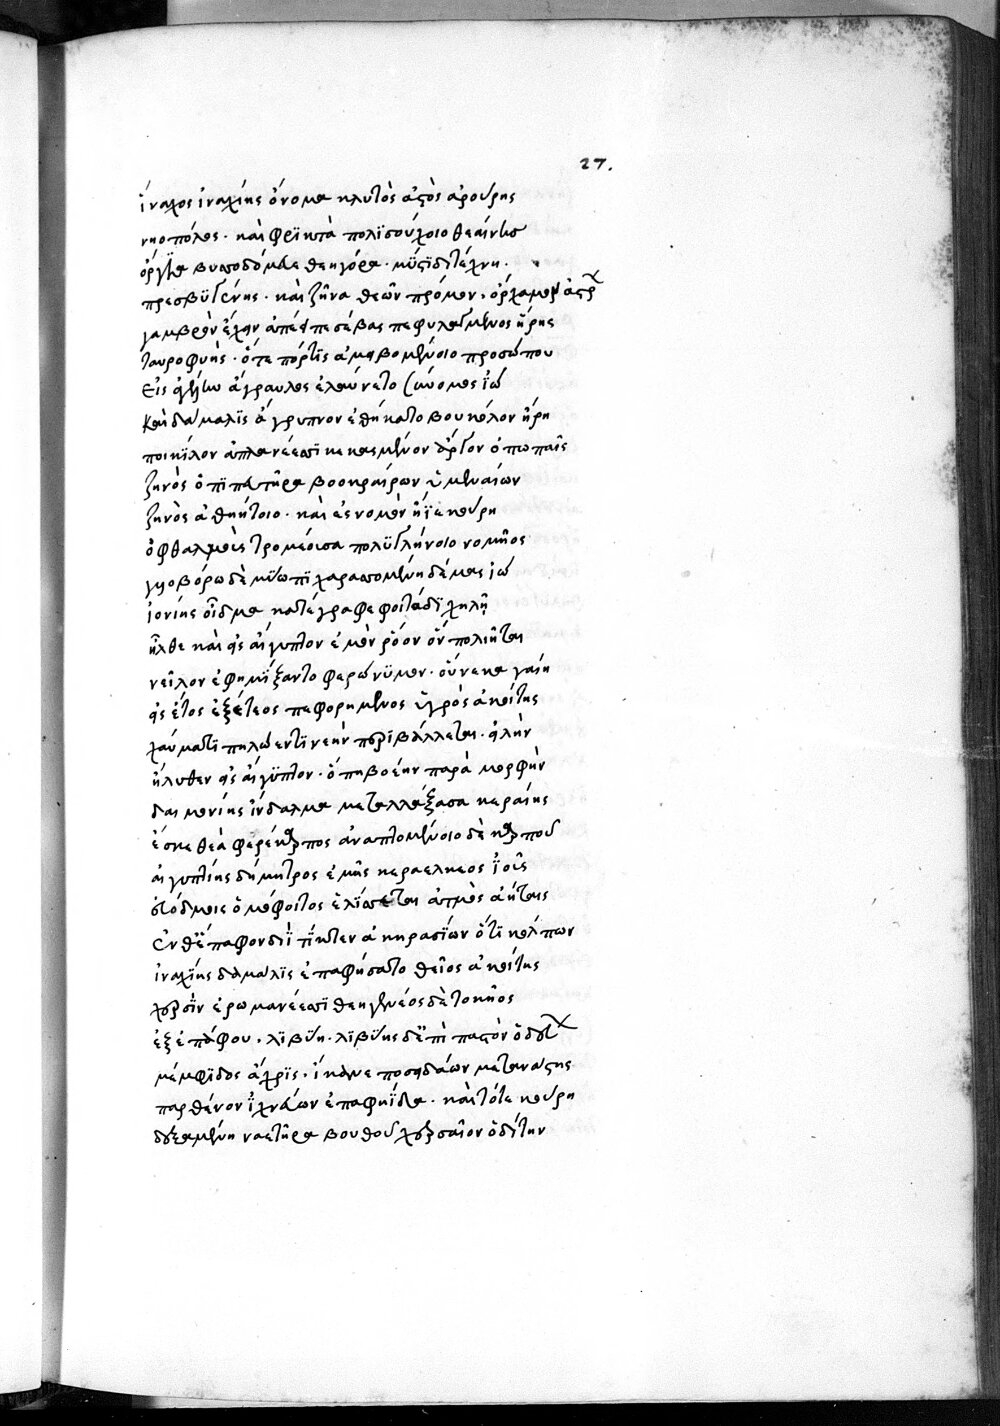 27.
ἴναχος ἰναχίης ὀνομα κλυτὸς ἀςὸς ἀρούρης
νηοπόλος · καὶ φρϊκτὰ πολϊσούχοιο θεαίνης
ὄργϊα βυσσοδόμευε θεηγόρα · μύςϊδι τέχνη ·
πρεσβϋγενής · καὶ ζῆνα θεῶν πρόμον · ὄρχαμον ἄςρ
γαμβρὸν ἔχειν ἀπέειπε σέβας πεφυλαγμένος ἥρης
ταυροφυὴς · ὅτε πόρτϊς ἀμειβομένοιο προσώπου
εἰς ἀγέλην ἄγραυλος ἐλαύνετο σύνομος ἰώ
καὶ δαμαλϊς ἄγρυπνον ἐθήκατο βουκόλον ἥρη
ποικίλον ἀπλανέεσϊ κεκασμένον ἄργον ὀπωπαῖς
ζηνὸς ὀπϊπευτῆρα βοοκραίρων ὑμεναίων
ζηνὸς ἀθηήτοιο · καὶ ἐς νομὸν ἤϊε κούρη
ὀφθαλμοὺς τρομέοισα πολϋγλήνοιο νομῆος
γυιοβόρω δὲ μύωπϊ χαρασσομένη δέμας ἰώ
ἰονίης οἶδμα κατέγραφε φοιτάδϊ χηλῆ
ἦλθε καὶ εἰς αἴγυπτον ἐμὸν ῥόον ὅν πολιῆται
νεῖλον ἐφημΐξαντο φερώνϋμον · οὕνεκα γαίη
εἰς ἔτος ἐξέτεος πεφορημένος ὑγρὸς ἀκοίτης
χεύματϊ πηλώεντϊ νεὴν περϊβάλλεται · ἰλὴν
ἤλυθεν εἰς αἴγϋπτον · ὅπη βοέην παρὰ μορφὴν
δαιμονίης ἴνδαλμα μεταλλάξασα κεραίης
ἔσκε θεὰ φερέκαρπος ἀναπτομένοιο δὲ καρποῦ
αἰγυπτίης δήμητρος ἐμῆς κεραελκεος ἰοῦς
εὐόδμοις ὁμόφοιτος ἑλίσσεται ἀτμὸς ἀήταις
ἔνθ᾽ ἔπαφον διῒ τΐκτεν ἀκηρασίων ὅτϊ κόλπων
ἰναχΐης δάμαλϊς ἐπαφήσατο θεῖος ἀκοίτης
χερσῒν ἐρωμανέεσσϊ θεηγενέος δὲ τοκῆος
ἐξ ἐπάφου · λϊβύη · λϊβύης δ᾽ ἐπῒ παςὸν ὁδευ
μέμφϊδος ἄχρϊς · ἵκανε ποσειδάων μετανάςης
παρθένον ἰχνεύων ἐπαφηΐδα · καὶ τότε κούρη
δεξαμένη ναετῆρα βυθοῦ χερσαῖον ὁδίτην